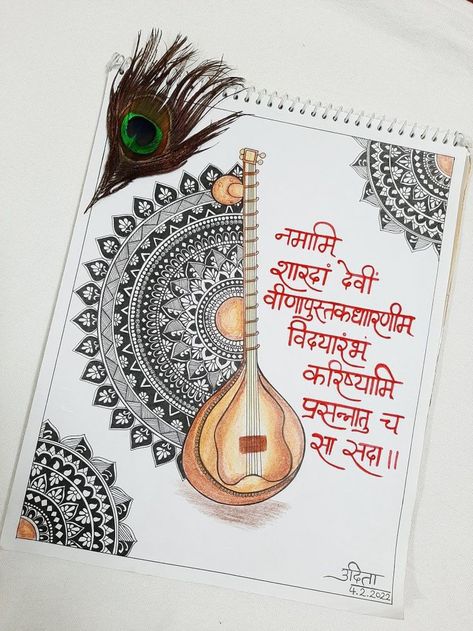 नमामि
शारदां देवीं
वीणापुस्तकधारिणीम
विद्यारंभं
करिष्यामि
प्रसन्नातु च
सा सदा॥
उदिता
4.2.2022